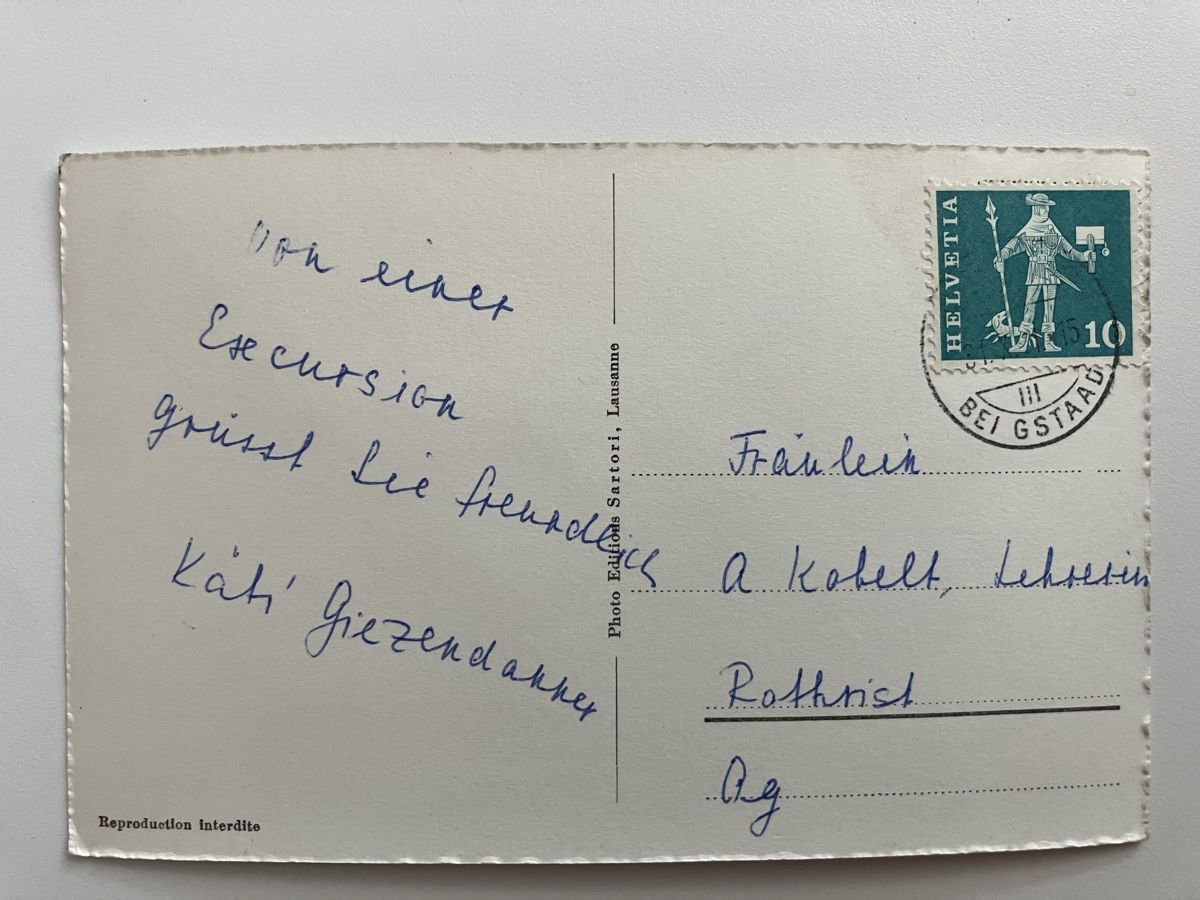 Von einer
Excursion
grüsst Sie freundlich
Käti Giezendanner
Reproduction interdite
Photo Editions Sartori, Lausanne
HELVETIA
10
III
BEI GSTAAD
Fräulein
A Kobelt, Lehrerin
Rothrist
Ag